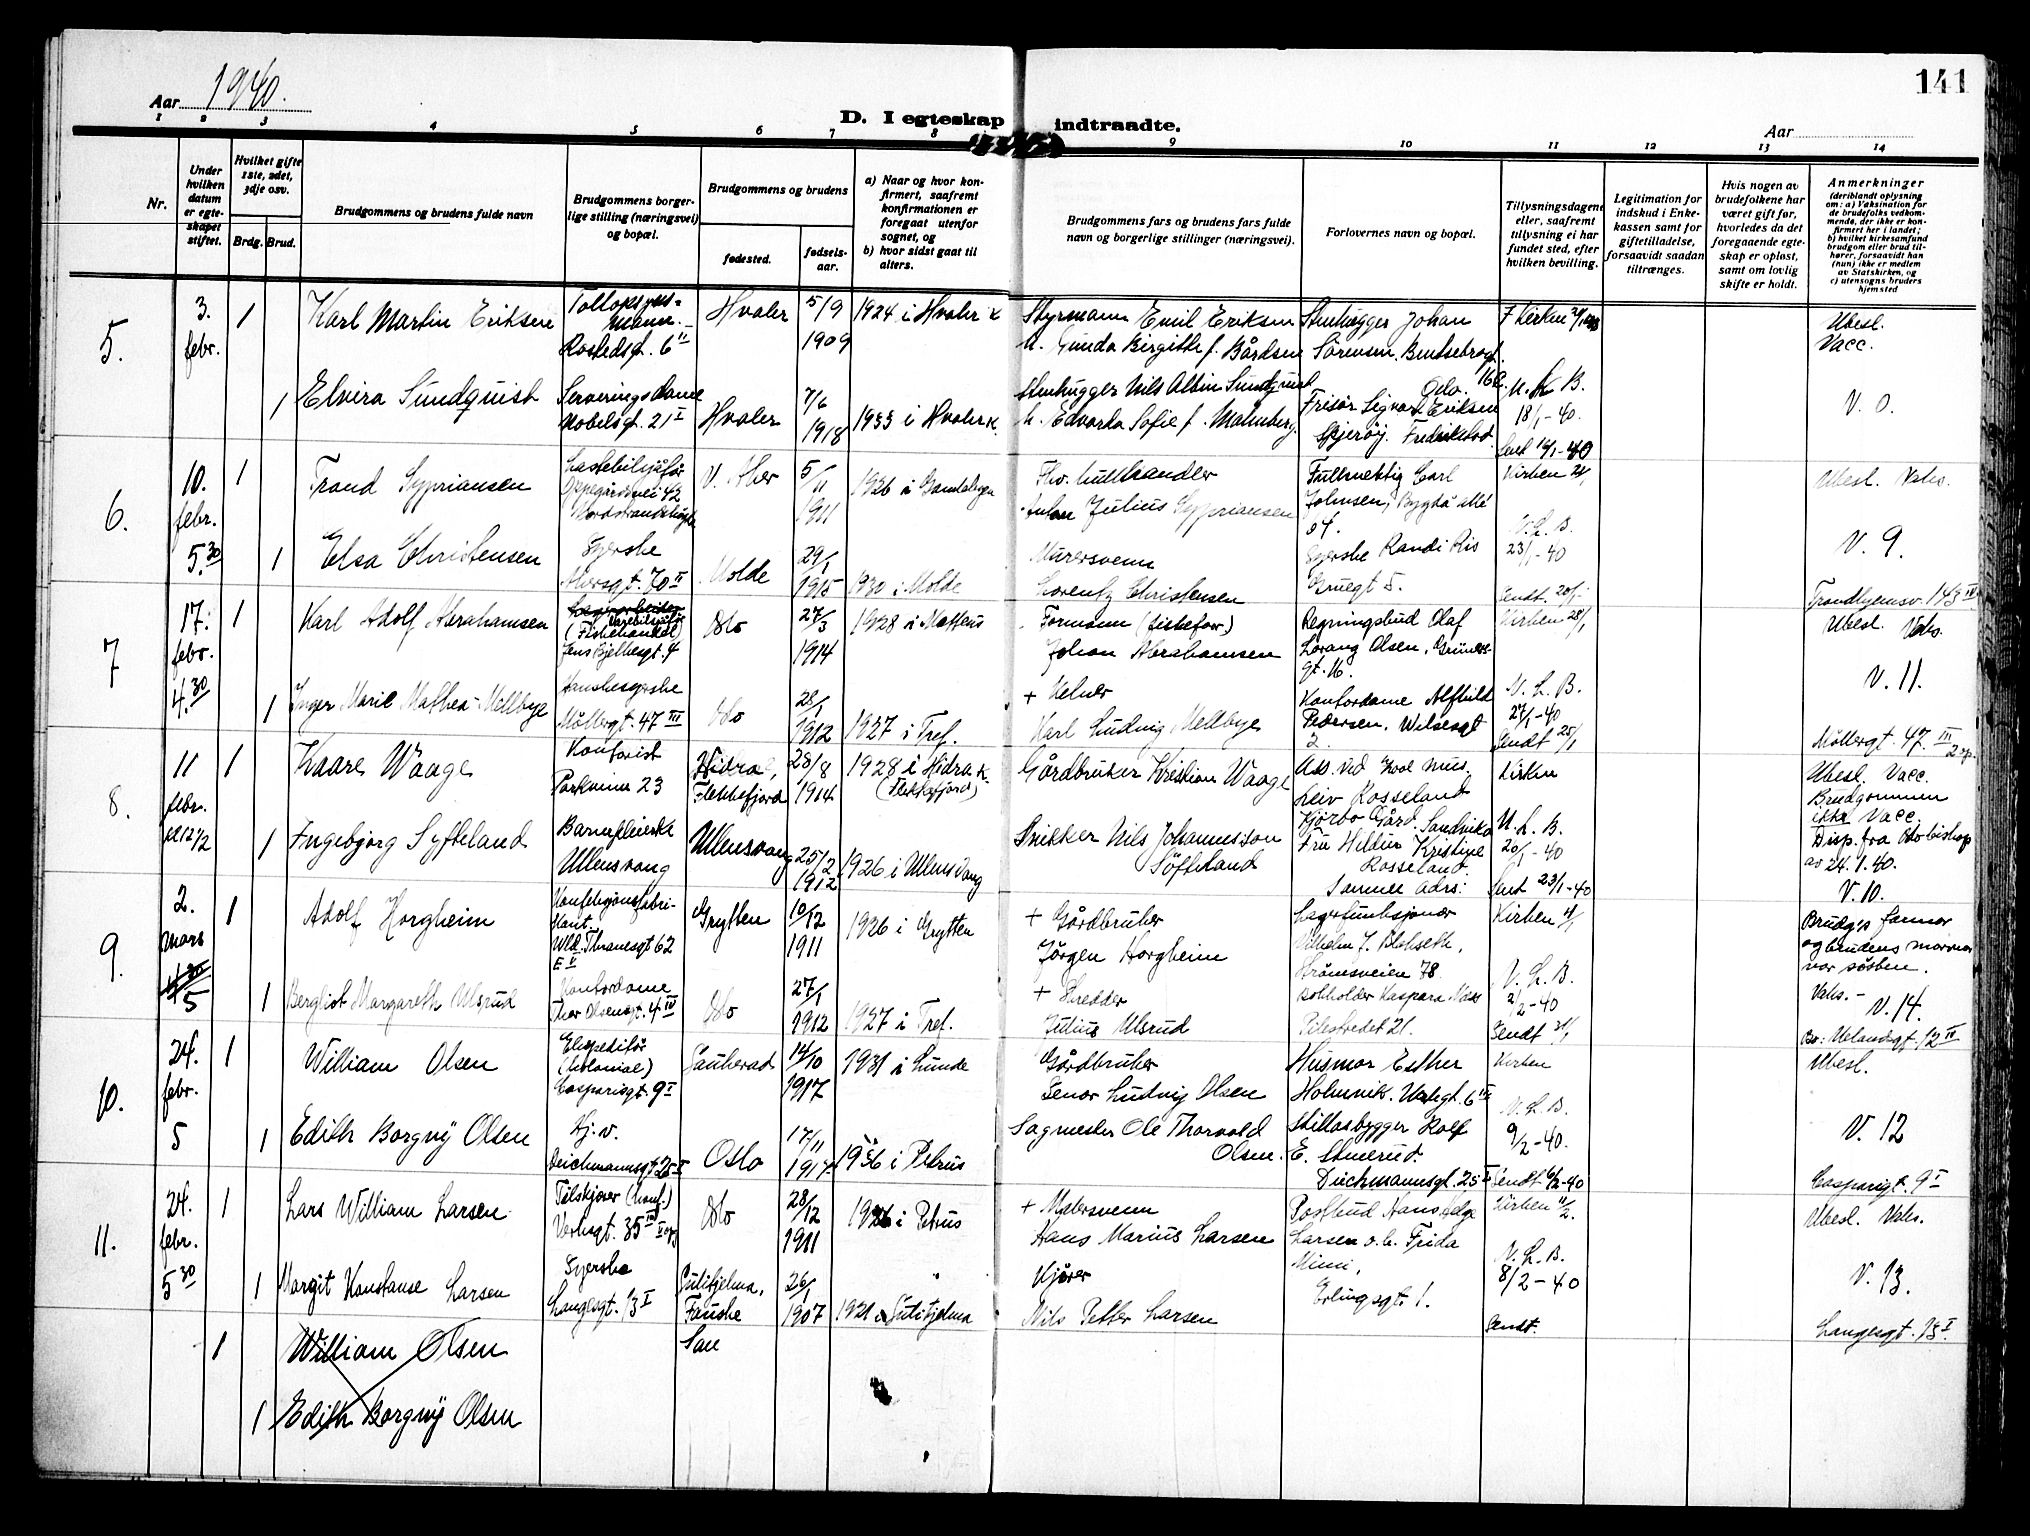 Aar 1940.
D. I egteskap indtraadte.
Aar
141
1 2 3 4 5 6 7 8 9 10 11 12 13 14
Nr.
Under hvilken datum er egteskapet stiftet.
Hvilket gifte 1ste, 2det, 3dje osv.
Brdg. Brud.
Brudgommens og brudens fulde navn
Brudgommens borgerlige stilling (næringsvei) og bopæl.
Brudgommens og brudens
fødested.
fødselsaar.
a) Naar og hvor konfirmert, saafremt konfirmationen er foregaat utenfor sognet, og
b) hvor sidst gaat til alters.
Brudgommens fars og brudens fars fulde navn og borgerlige stillinger (næringsvei).
Forlovernes navn og bopæl.
Tillysningsdagene eller, saafremt tillysning ei har fundet sted, efter hvilken bevilling.
Legitimation for indskud i Enkekassen samt for giftetilladelse, forsaavidt saadan tiltrænges.
Hvis nogen av brudefolkene har været gift før, hvorledes da det foregaaende egteskap er opløst, samt om lovlig skifte er holdt.
Anmerkninger
(deriblandt oplysning om: a) Vaksination for de brudefolks vedkommende, der ikke er konfirmert her i landet; b) hvilket kirkesamfund brudgom eller brud tilhører, forsaavidt han (hun) ikke er medlem av Statskirken, og c) utensogns bruders hjemsted
5.
3. febr.
1 Karl Martin Eriksen
Rostedsgt. 6 II
Hvaler
5/9 1909
1924 i Hvaler k
Styrmann Emil Eriksen
u. Gunda Birgithe f. Bårdsen
Stenhugger Johan Sörensen. Bentsebrogt. 16 b. Oslo.
Ubesl. Vacc.
1 Elvira Sundquist
Serveringsdame
Nobelsgt. 21 I
Hvaler
7/6 1918
1933 i Hvaler k.
Stenhugger Nils Albin Sundquist
u. Edvarda Sofie f. Malmberg.
Frisör Sigvart Eriksen
Skjeröy. Fredrikstad.
U. L. B.
18/1-40.
V. 8.
6.
10. febr. 5.30
1 Trond Sypriansen
Lastebilsjåför
Oppegårdsvei 42
Nordstrandshögda
V. Aker
5/11 1911
1926 i Gamlebyen
Julius Sypriansen
Fullmektig Carl Johnsen, Bygdö allé
Kirken 21/1
Ubesl. Vaks.
1 Elsa Christensen
Syerske
Akersgt. 70 II
Molde
29/1 1915
1930 i Molde
Murersvenn
Lorentz Christensen
Syerske Randi Ris
Kruegt 5.
V. L. B.
23/1-40
V. 9.
Trondhjemsv. 143 III
7
17. febr. 4.30
1 Karl Adolf Abrahamsen
(Fiskehandel)
Jens Bjelkesgt. 4
Oslo
27/3 1914
1928 i Matteus
Formann (fiskeforr.)
Johan Abrahamsen
Regningsbud Olaf
Lorang Olsen, Grünersgt. 16.
Kirken 28/1
Ubesl. Vaks.
1 Inger Marie Mathea Mellbye
Hanskesyerske
Möllergt. 47 III
Oslo
28/1 1912
1927 i Tref.
+ Kelner
Karl Ludvig Mellbye
Kontordame Alfhild
Pedersen, Wilsesgt 2.
V. L. B.
27/1-40
Sendt 25/1
V. 11.
Möllergt. 47. III
8.
11 febr. kl 12 1/2
1 Kaare Waage
Kontorist
Parkveien 23
Hidra, Flekkefjord
28/8 1914
1928 i Hidra k. (Flekkefjord)
Gårdbruker Kristian Waage
Ass. ved Zool mus.
Leiv Rosseland
Kjörbo Gård. Sandvika
Kirken
Ubesl. Vacc.
Brudgommen ikke Vacc.
Disp. fra Oslo biskop
av 24.1.40.
V. 10.
1 Ingebjörg Syfteland
Barnepleierske
Ullensvang
Ullensvang
25/2 1912
1926 i Ullensvang
Snikker Nils Johannesson Söfteland
Fru Hildur Kristine Rosseland.
Samme adrs:
U. L. B.
20/1-40
Sent 23/1-40
9.
2. mars 5
1 Adolf Horgheim
Konfeksjonsfabrikant.
Wld. Thranesgt 62
E V
Grytten
10/12 1911
1926 i Grytten
+ Gårdbruker
Jörgen Horgheim
Lagerfunksjonær
Strömsveien 78
Kirken 4/1
Brudg's farmor
og brudens mormor
var søsken.
Vaks. -
1 Bergliot Margareth Ulsrud
Kontordame
Thor Olsensgt. 4 III
Oslo
27/1 1912
1927 i Tref.
+ Skredder
Julius Ulsrud
Kaspara Næss
Pilestredet 21.
V. L. B.
2/2-40
Sendt 31/1
V. 14.
Bo: Uelandsgt. 12 II
10.
24. febr. 5
1 William Olsen
Ekspeditör
(kolonial)
Casparisgt. 9 I
Sauherad
14/10 1917
1931 i Lunde
Gårdbruker
Senor Ludvig Olsen
Husmor Esther
Holmvik.
Kirken
Ubesl.
1 Edith Borgny Olsen
Hj. v.
Deichmannsgt 25 I
Oslo
17/11 1917
1936 i Petrus
Sagmester Ole Thorvald Olsen.
Stillasbygger Rolf E. Stenerud.
Deichmannsgt. 25 I
V. L. B.
9/2-40.
Sendt 6/2-40
V. 12
Casparigt. 9 I
11.
24. febr. 5 30
1 Lars William Larsen
Oslo
28/12 1911
1926 i Petrus
+ Malersvenn
Hans Marius Larsen
Postbud Hans Helge
Larsen o. h. Frida
Mimi,
Kirken 11/2.
Ubesl. Vaks.
1 Margit Konstanse Larsen
Syerske
Langesgt. 13 I
Sulitjelma, Fauske
26/1 1907
1921 i Sulitjelma
Kjører
Nils Petter Larsen
Erlingsgt. 1.
V. L. B.
8/2-40
Sendt.
V. 13.
Langesgt. 13 I
1 William Olsen
Sau
1 Edith Borgny Olsen